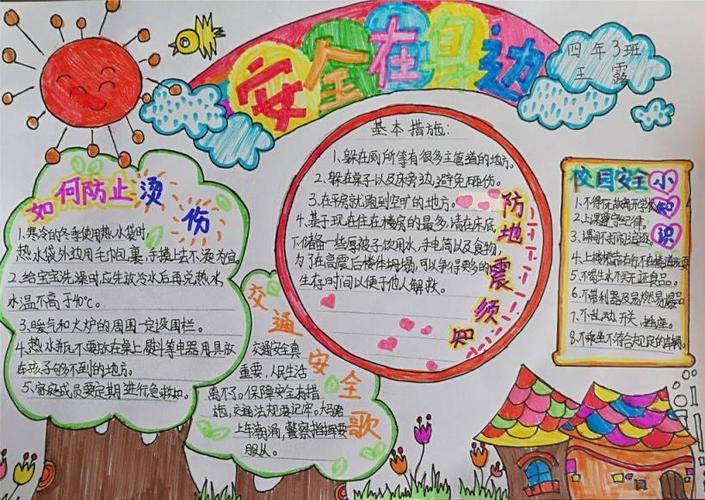 安全在身边
四年3班
王露
如何防止烫伤
1.寒冷的冬季使用热水袋时,
热水袋外边用毛巾包裹,手摸上去不烫为宜
2.给宝宝洗澡时应先放冷水后再兑热水,
水温不高于40℃。
3.暖气和火炉的周围一定设围栏。
4.热水瓶不要放在桌上熨斗等电器用具放
在孩子够不到的地方。
5.家庭成员要定期进行急救知
交通安全歌
交通安全真
重要,人民生活
离不了。保障安全有措
施,交通法规要记牢。大马路
上车
警察指挥要
服从。
基本措施:
1.躲在厕所等有很多主管道的地方。
2.躲在桌子以及床旁边,避免砸伤。
3.在平房就跑到空旷的地方。
4.基于现在住在楼房的最多,请在床底
下储备一些厚被子饮用水,手电筒以及食物,
为了在高震后楼体坍塌,可以争得更多的
生存时间以便于他人解救。
防地震须知
校园安全小知识
1.不得
2.上课遵守纪律。
3.课间不打闹追逐。
4.上楼梯靠右行不在楼道
5.不喝生水不买
食品。
6.不带利器及易燃易爆品
7.不乱动开关、插座。
8.不乘坐不符合规定的车辆。